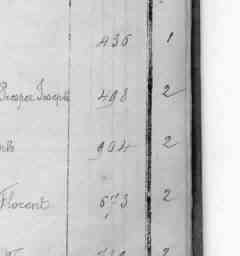 436 1
Prosper Joseph 498 2
904 2
Florent 573 2